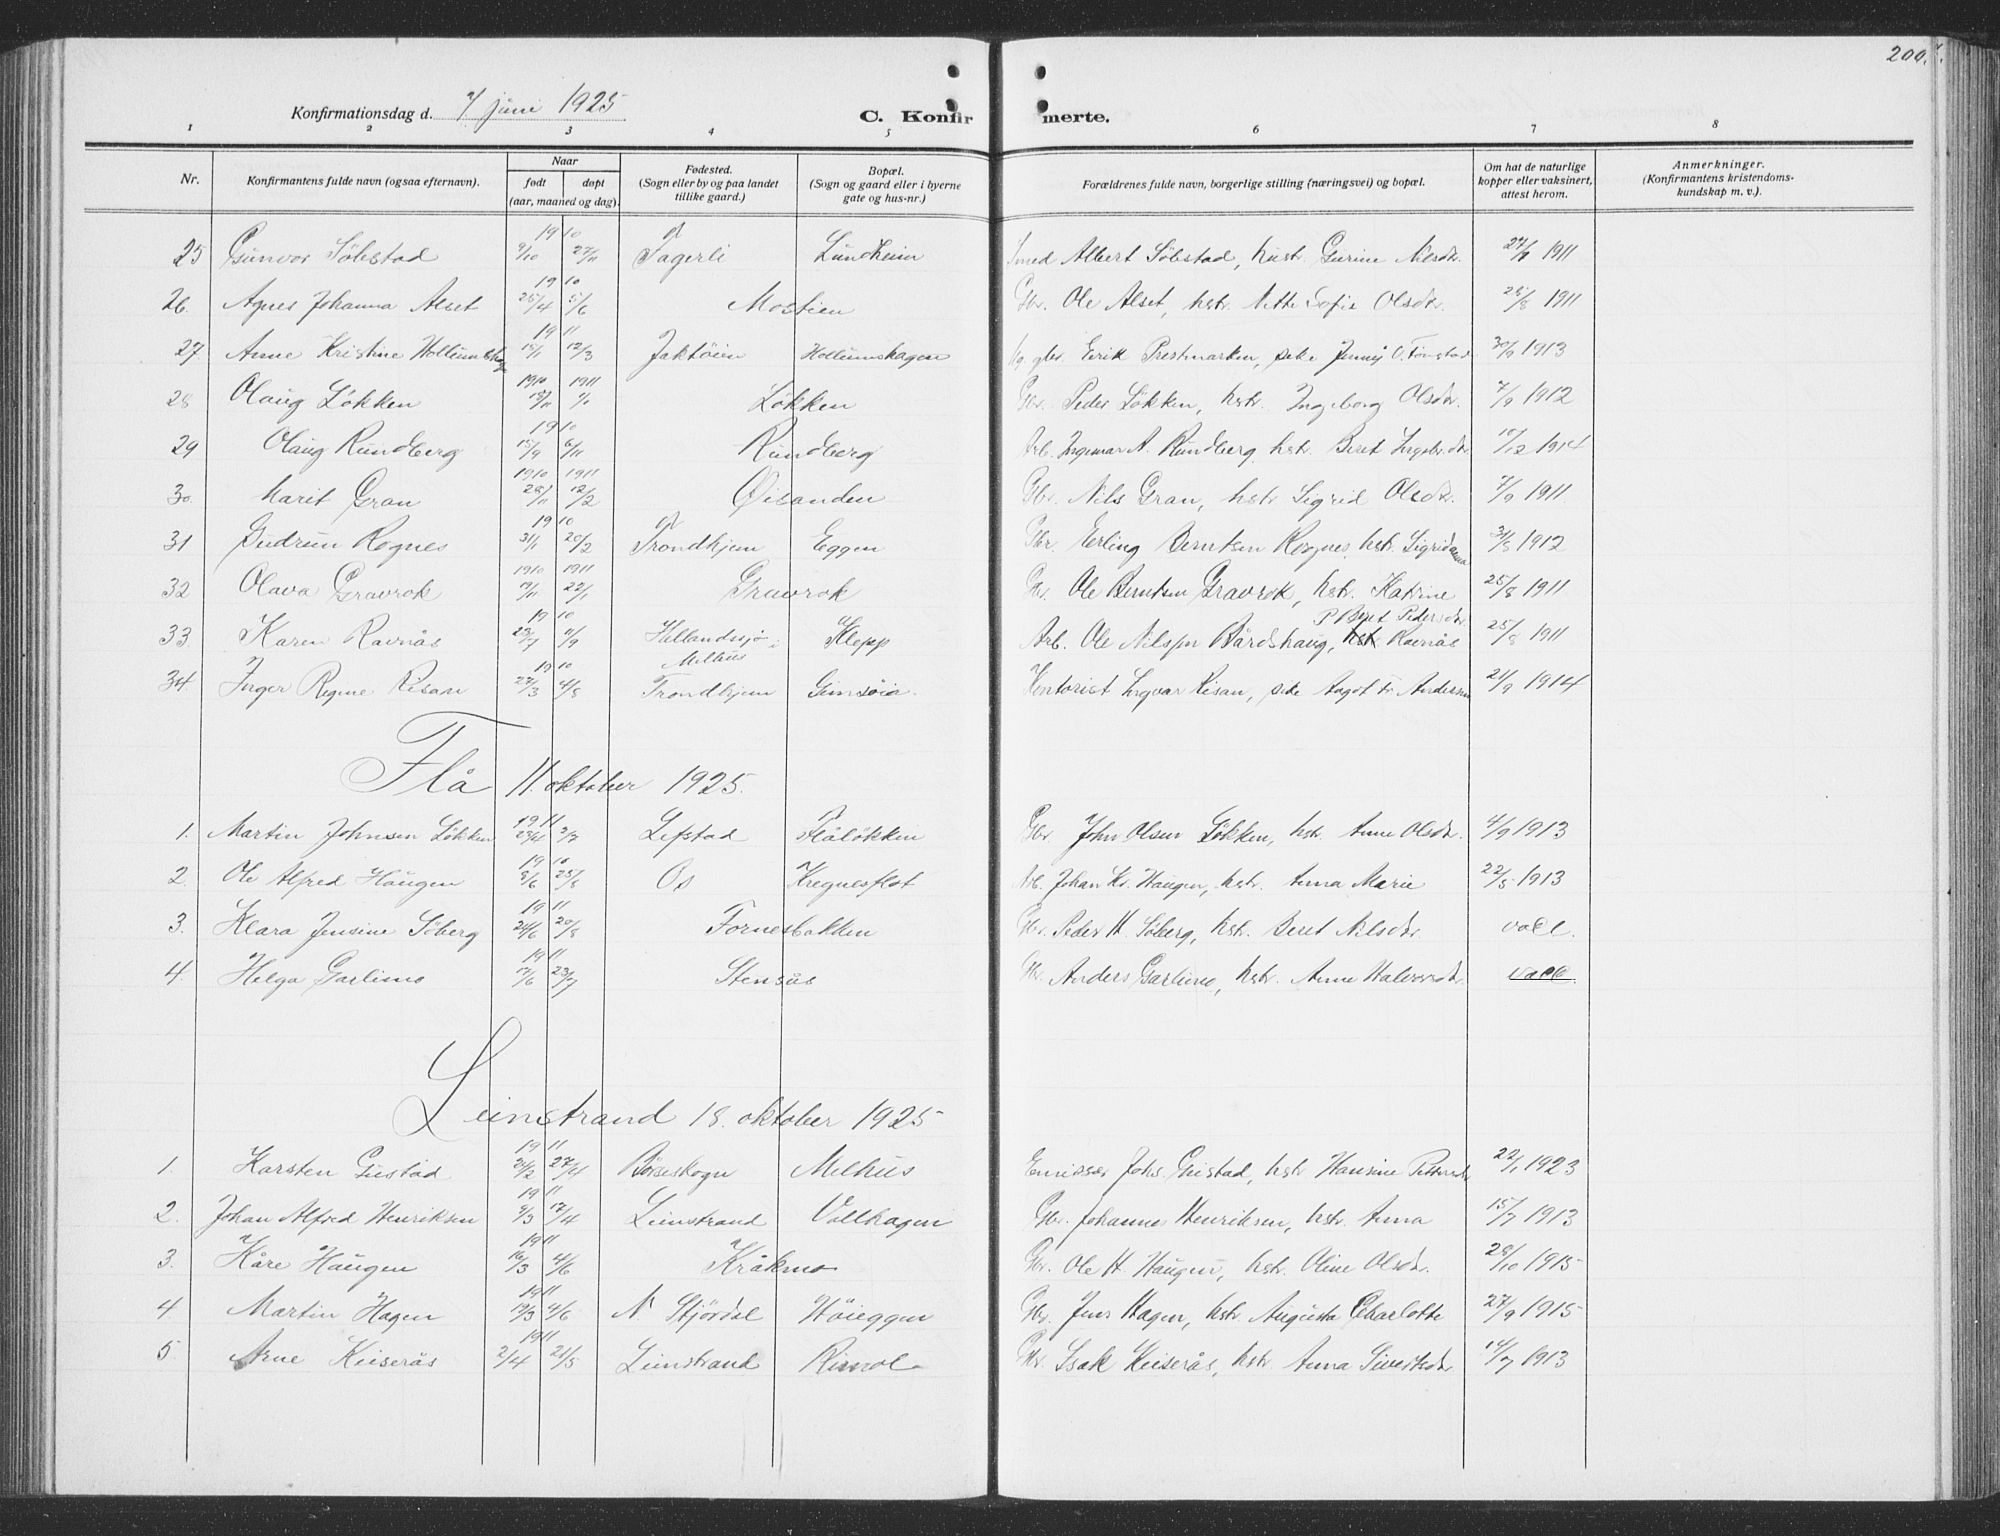 200.
Konfirmationsdag d. 7/ juni 1925
C. Konfirmerte.
1 2 3 4 5 6 7 8
Nr. Konfirmantens fulde navn (ogsaa efternavn). Naar født døpt (aar, maaned og dag). Fødested. (Sogn eller by og paa landet tillike gaard.) Bopæl. (Sogn og gaard eller i byerne gate og hus-nr.) Forældrenes fulde navn, borgerlige stilling (næringsvei) og bopæl. Om hat de naturlige kopper eller vaksinert, attest herom. Anmerkninger. (Konfirmantens kristendomskundskap m. v.).
25 Gunvor Søbstad 1910 9/10 27/11 Fagerli Lundheim Smed Albert Søbstad, hustr. Gurine Nilsdtr. 27/9 1911
26. Agnes Johanna Alset 1910 25/4 5/6 Mostien Gbr. Ole Alset, hstr. Mette Sofie Olsdtr. 25/8 1911
27 Anne Kristine Hollumshag 1911 15/1 12/3 Jaktøien Hollumshagen Ug. gbr. Eirik Prestmarken, pike Jenny O. Tønstad 30/9 1913
28 Olaug Løkken 1910 1911 18/11 Løkken Gbr. Peder Løkken, hstr. Ingeborg Olsdtr. 7/9 1912
29 Olaug Rundberg 1910 15/9 6/11 Rundberg Arb. Ingemar A. Rundberg, hstr. Beret Ingebr.dtr. 10/12 1914
30. Marit Gran 1910 1911 28/11 12/2 Øisanden Gbr. Nils Gran, hstr. Sigrid Olsdtr. 7/9 1911.
31 Gudrun Rognes 1910 31/1 20/2 Trondhjem Eggen Gbr. Erling Berntsen Rognes, hstr. Sigridanna 31/8 1912
32 Olava Gravrok 1910 1911 19/11 22/1 Gravrok Gbr. Ole Berntsen Gravrok, hstr. Katrine 25/8 1911
33 Karen Ravnås 1910 23/7 11/9 Hollandsjø i Melhus Klepp Arb. Ole Nilsen Bårdshaug, P. Beret Pedersdtr. Ravnås 25/8 1911
34 Inger Regine Risan 1910 27/3 4/8 Trondhjem Gimsøia. Kontorist Ingvar Risan, pike Aagot Fr. Andersen 21/9 1914
Flå 11. oktober 1925.
1. Martin Johnsen Løkken 1911 23/4 3/7 Lefstad Flåløkken Gbr. John Olsen Løkken, hstr. Anne Olsdtr. 4/9 1913
2. Ole Alfred Haugen 1910 8/6 25/8 Os Kregnesflot Arb. Johan Kr. Haugen, hstr. Anna Marie 22/5 1913
3. Klara Jensine Søberg 1911 24/6 20/8 Fornesbakken Gbr. Peder H. Søberg, hstr. Beret Nilsdtr. vacc.
4. Helga Garlimo 1911 17/6 23/7 Stensås Gbr. Anders Garlimo, hstr. Anne Halvorsdtr. vacc.
Leinstrand 18. oktober 1925
1. Karsten Gustad 1911 21/2 27/4 Børseskogn Melhus Emissær Johs. Gustad, hstr. Hansine Pettersdtr. 22/1 1923
2. Johan Alfred Henriksen 1911 9/3 17/4 Leinstrand Vollhagen Gbr. Johannes Henriksen, hstr. Anna 15/7 1913
3. Kåre Haugen 1911 16/3 4/6 Kråkmo Gbr. Ole H. Haugen, hstr. Oline Olsdtr. 28/10 1915
4. Martin Hagen 1911 19/3 4/6 N. Stjørdal Høieggen Gbr. Jens Hagen, hstr. Augusta Charlotte 27/9 1915
5. Arne Kuserås 1911 2/4 21/5 Leinstrand Rimol Gbr. Isak Kuserås, hstr. Anna Sivertsdtr. 14/7 1913